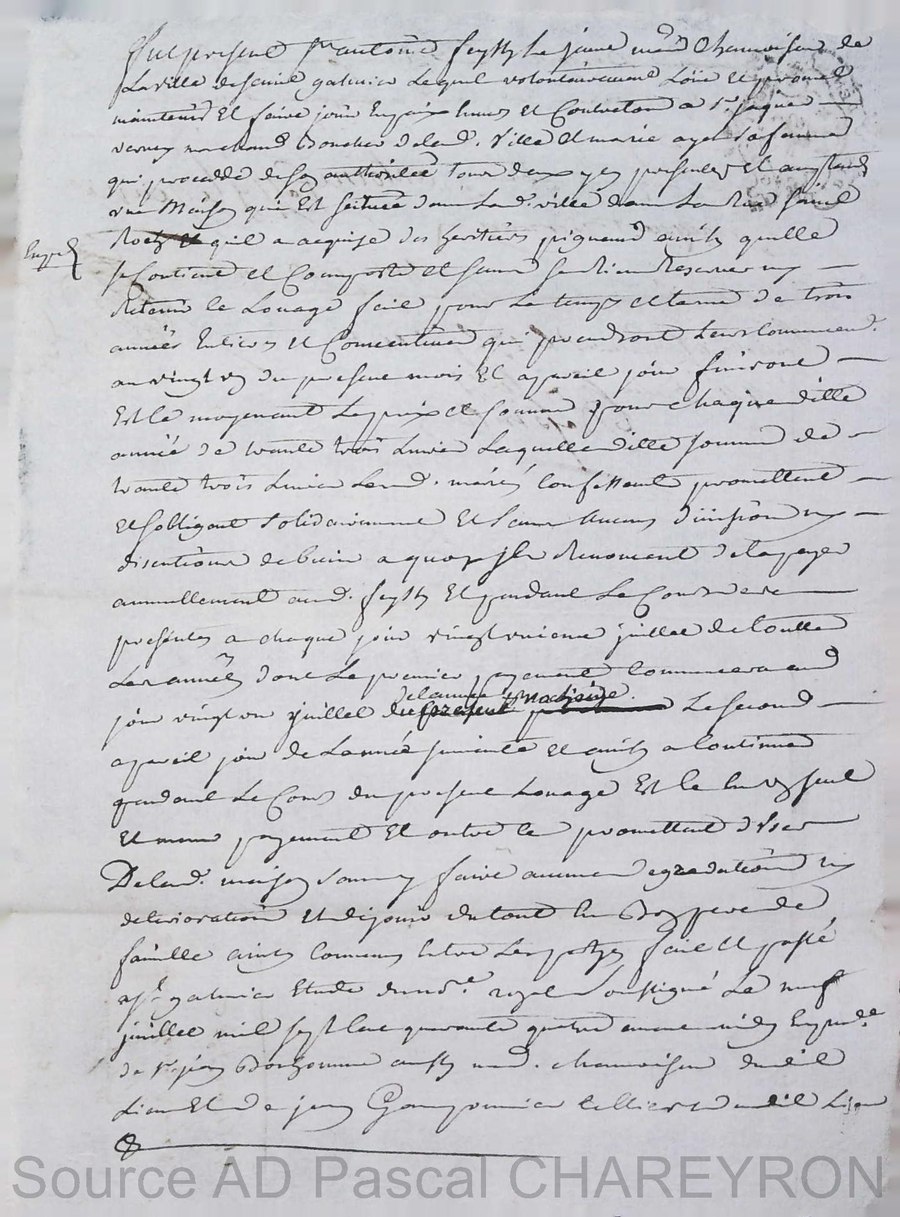 Fut present Sr antoine feyssy le jeune md Chamoiseur de
La ville de saint galmier Lequel volontairement Loüe et promet
maintenir et faire joüir En paix Envers et Contre tous a Sr jaque
verney marchand Boucher de lad. ville et marie ayel sa femme
qui procedde de son authoritée tous deux ycy presents et acceptants
une Maison qui Est scittuée dans Lad. ville dans La Rue saint
Roch et quil a acquise des heritiers pigneud ainsy quelle
se Contient et Comporte et sans sen Rien Reserver ny
Retenir le Loüage fait pour Le temps et terme de trois
années Entieres et Consecutives qui prendront Leur Commenct.
au vingt un du present mois Et a pareil jour finiront
Est le moyenant Le prix et somme pour chaque ditte
année de trante trois Livres Laquelle ditte somme de
trante trois Livres Lesd. mariés Confessent promettent
et sobligent solidairement Et sans Aucune Division ny
discution de biens a quoy jls Renoncent de la payer
annuellement aud. feyssy Et pendant Le Cours des
presentes a chaque jour vingt unieme juillet de touttes
Les années dont Le premier payement Commencera aud
jour vingt un juillet de
de lannée prochaine Le second
a pareil jour de Lannée suivante et ainsy a Continuer
pendant Le Cours du present Loüage Est le En un seul
Et meme payement Et outre ce promettent dUser
De lad. maison sans y faire aucune degradation ny
deterioration Et dijouir du tout En Bon pere de
famille ainsy Convenu Entre Les parties fait et passé
a St. galmier Etude du nore. royal soussigné Le neuf
juillet mil sept Cent quarante quatre avant midy En pnce.
de Sr. jean Bonhomme aussy md. chamoiseur dud
Lieu Et de jean sellier dud Lieu
Source AD Pascal CHAREYRON